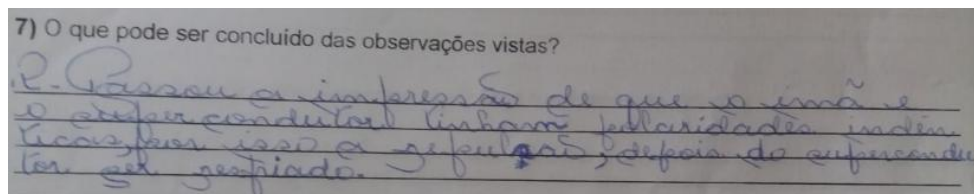 7) O que pode ser concluído das observações vistas?
R- Passou a impressão de que o imã e
o supercondutor tinham polaridades indên
ticas, por isso a repulsão, depois do supercondu
tor ser resfriado.